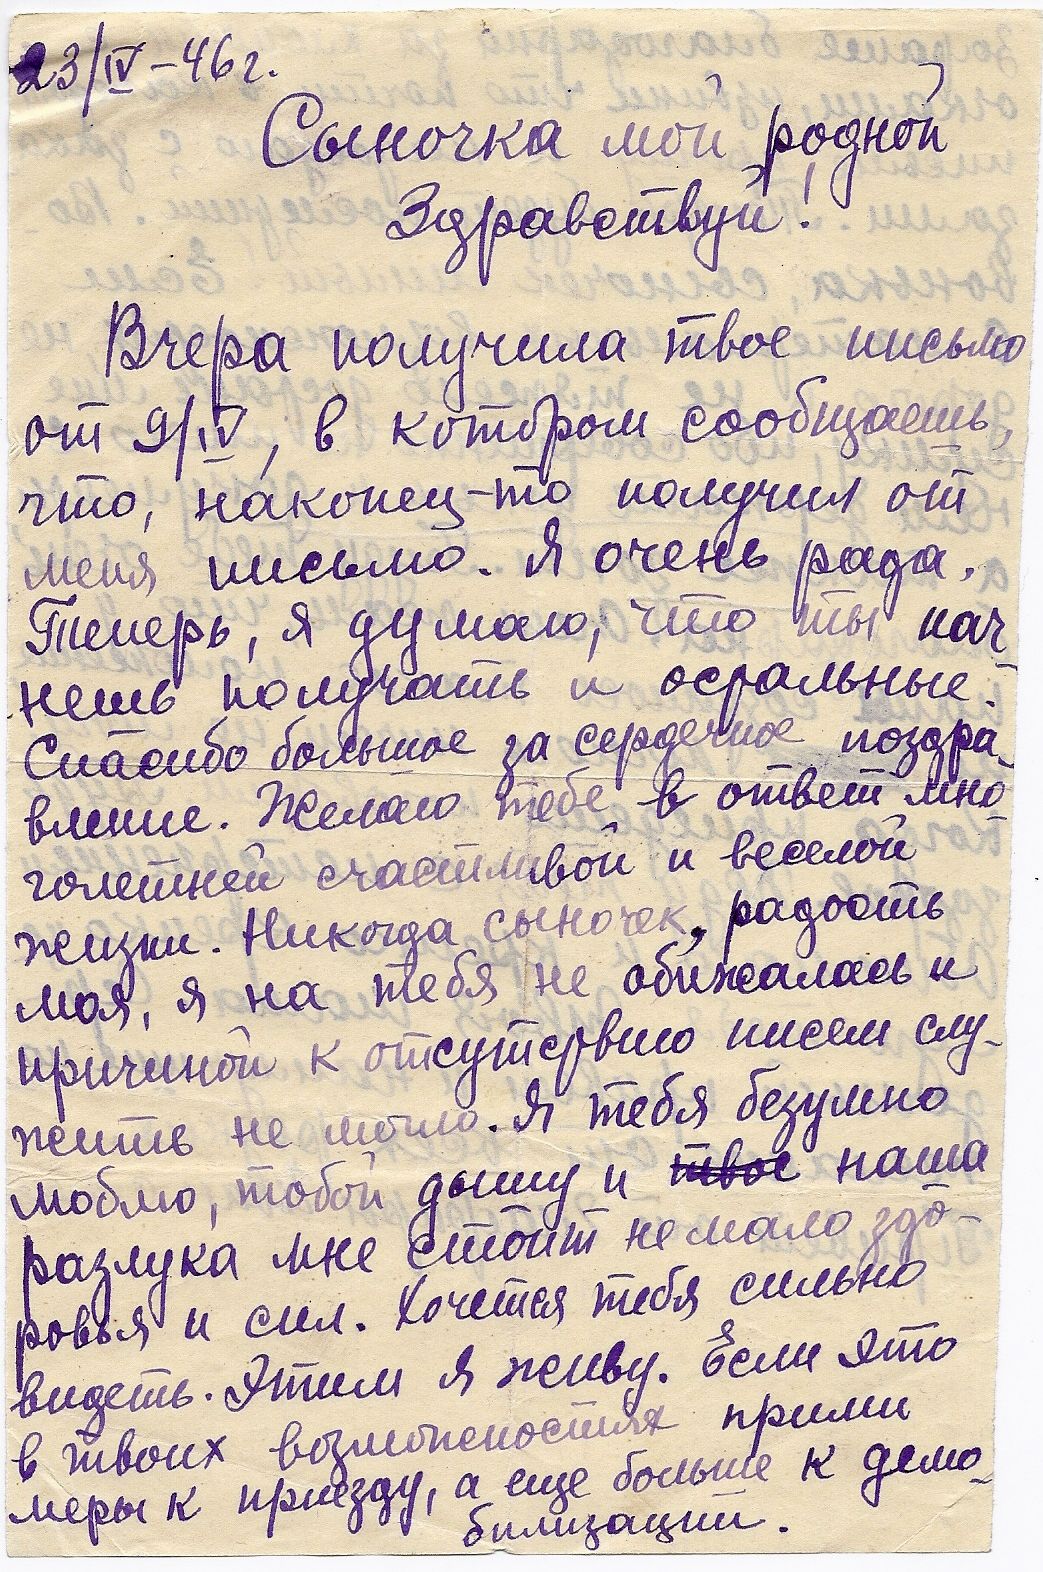 23/IV-46г.
Сыночка мой родной
Здравствуй!
Вчера получила твое письмо
от 9/IV, в котором сообщаешь,
что, наконец-то получил от
меня письмо. Я очень рада.
Теперь, я думаю, что ты нач
нешь получать и остальные.
Спасибо большое за сердечное поздра-
вление. Желаю тебе в ответ мно
голетней счастливой и веселой
жизни. Никогда сыночек, радость
моя, я на тебя не обижалась и
причиной к отсутствию писем слу-
жить не могло. Я тебя безумно
люблю, тобой дышу и твое наша
разлука мне стоит не мало здо-
ровья и сил. Хочется тебя сильно
видеть. Этим я живу. Если это
в твоих возможностях прими
меры к приезду, а еще больше к демо-
билизации.